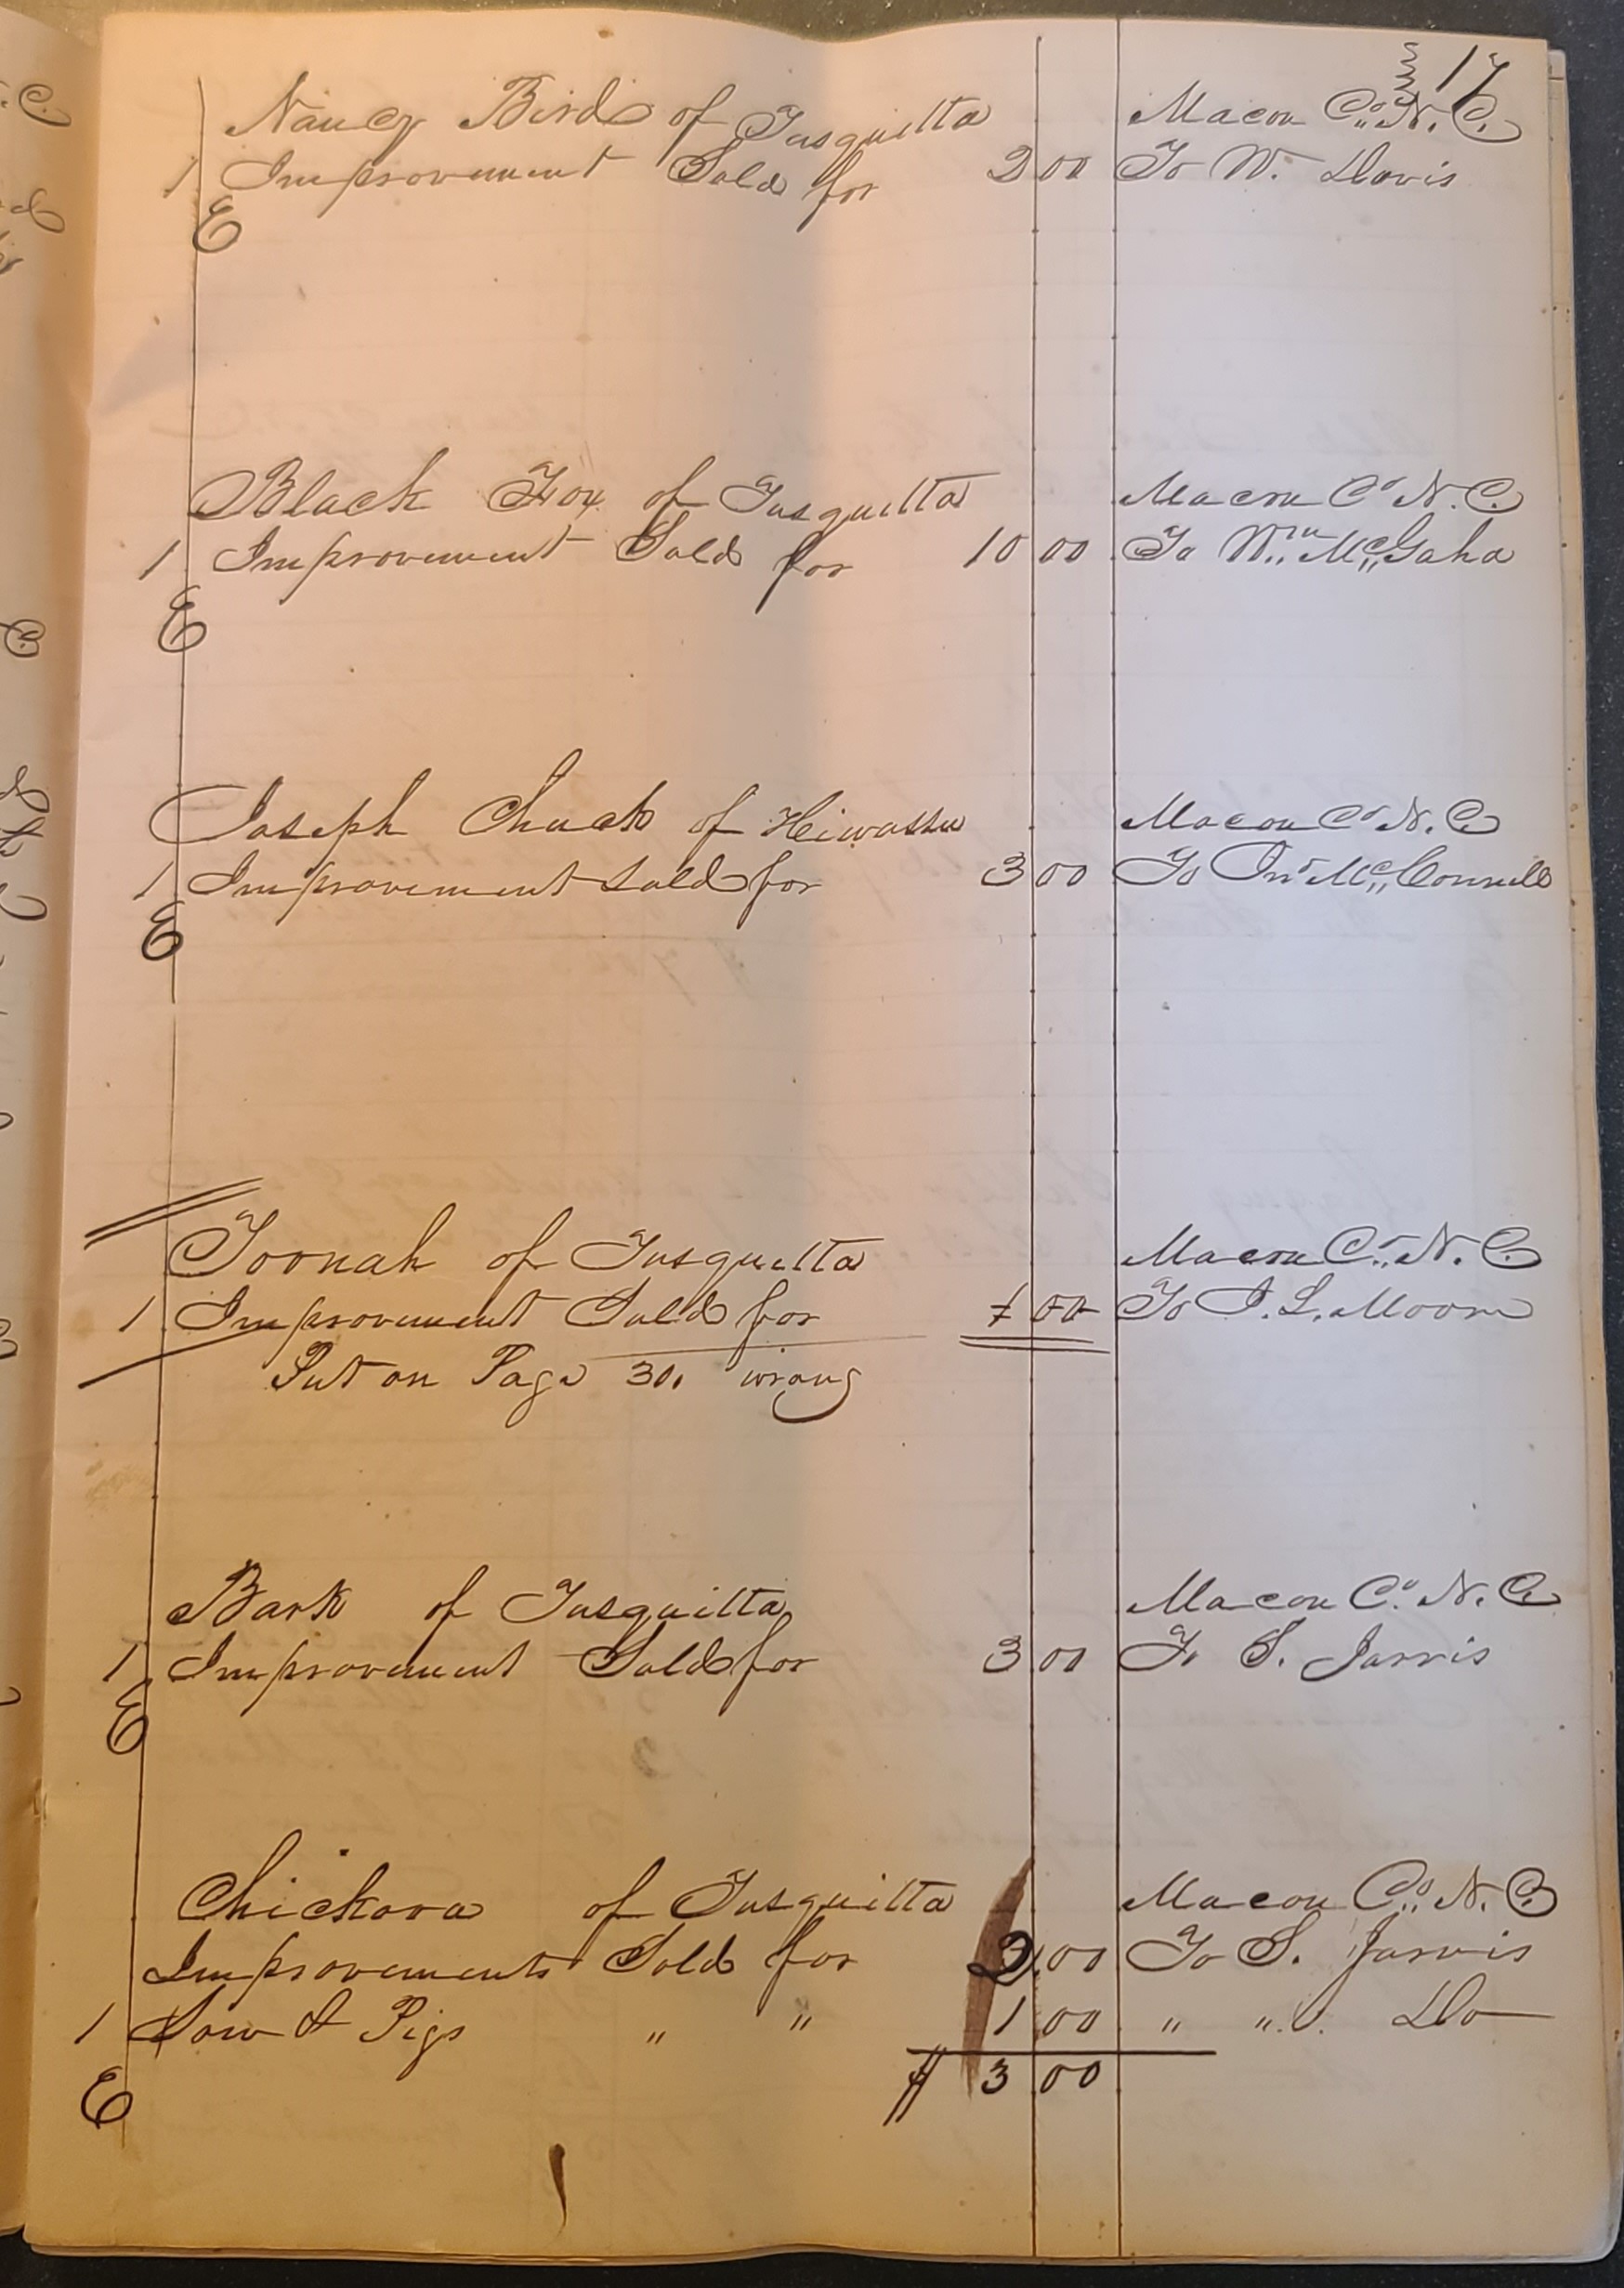 17
Nancy Bird of Tusquitta Macon Co. N. C.
1 Improvement Sold for 2 00 To W. Davis
E
Black Fox of Tusquitta Macon Co N. C.
1 Improvement Sold for 10 00 To Wm. McGaha
E
Joseph Chuck of Hiwassee Macon Co N. C.
1 Improvement Sold for 3 00 To Jno McConnell
E
Toonah of Tusquitta Macon Co. N. C.
1 Improvement Sold for 1 00 To J. L. Moore
Put on Page 30. wrong
Bark of Tusquitta Macon Co. N. C.
1 Improvement Sold for 3 00 To S. Jarvis
E
Chickooa of Tusquitta Macon Co. N. C.
Improvements Sold for 2.00 To S. Jarvis
1 Sow & Pigs " " 1 00 " " Do
$ 3 00
E